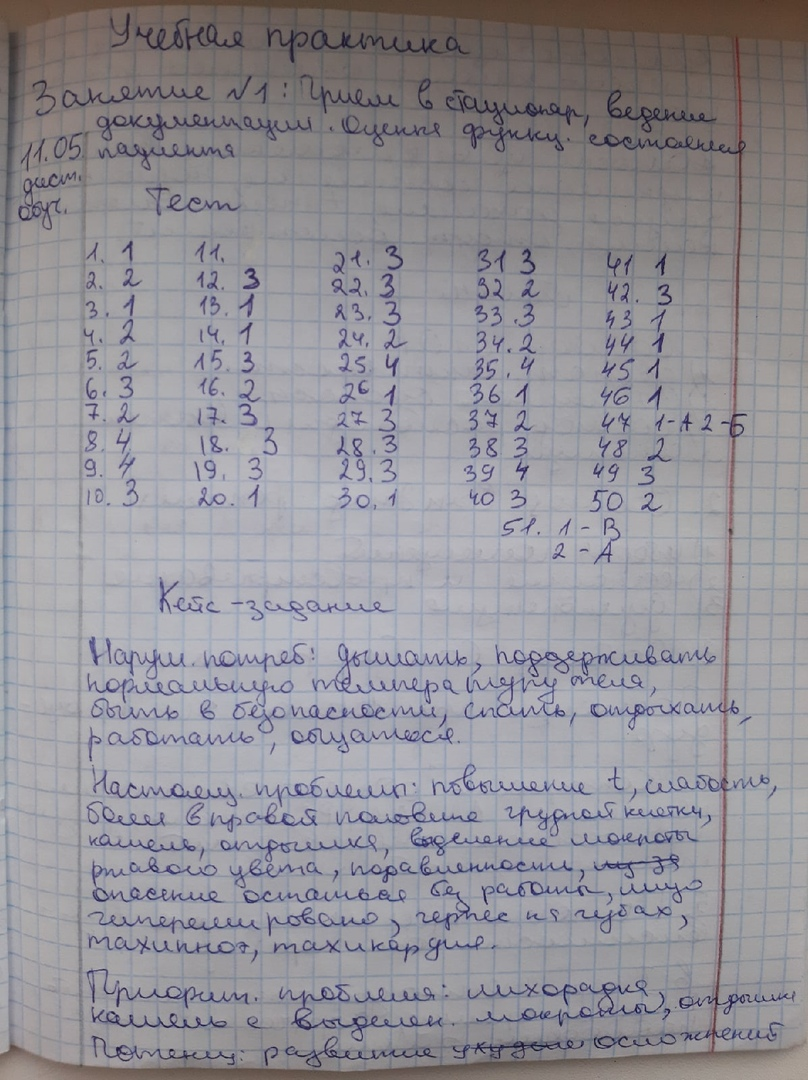 Учебная практика
Занятие №1: Прием в стационар, ведение
документации. Оценка функц. состояния
11.05 пациента
дист.
обуч.
Тест
1. 1 11. 21. 3 31 3 41 1
2. 2 12. 3 22. 3 32 2 42. 3
3. 1 13. 1 23. 3 33 .3 43 1
4. 2 14. 1 24. 2 34. 2 44 1
5. 2 15. 3 25 4 35. 4 45 1
6. 3 16. 2 26 1 36 1 46 1
7. 2 17. 3 27 3 37 2 47 1-А 2-Б
8. 4 18. 3 28. 3 38 3 48 2
9. 4 19. 3 29. 3 39 4 49 3
10. 3 20. 1 30. 1 40 3 50 2
51. 1 - В
2 - А
Кейс-задание
Наруш. потреб: дышать, поддерживать
нормальную температуру тела,
быть в безопасности, спать, отдыхать,
работать, общаться.
Настоящ. проблемы: повышение t, слабость,
боли в правой половине грудной клетки,
кашель, отдышка, выделение мокроты
ржавого цвета, подавленность,
опасение остаться без работы, лицо
гиперемировано, герпес на губах,
тахипноэ, тахикардия.
Приорит. проблема: лихорадка,
кашель с выделен. мокроты, отдышка
Потенц: развитие осложнений